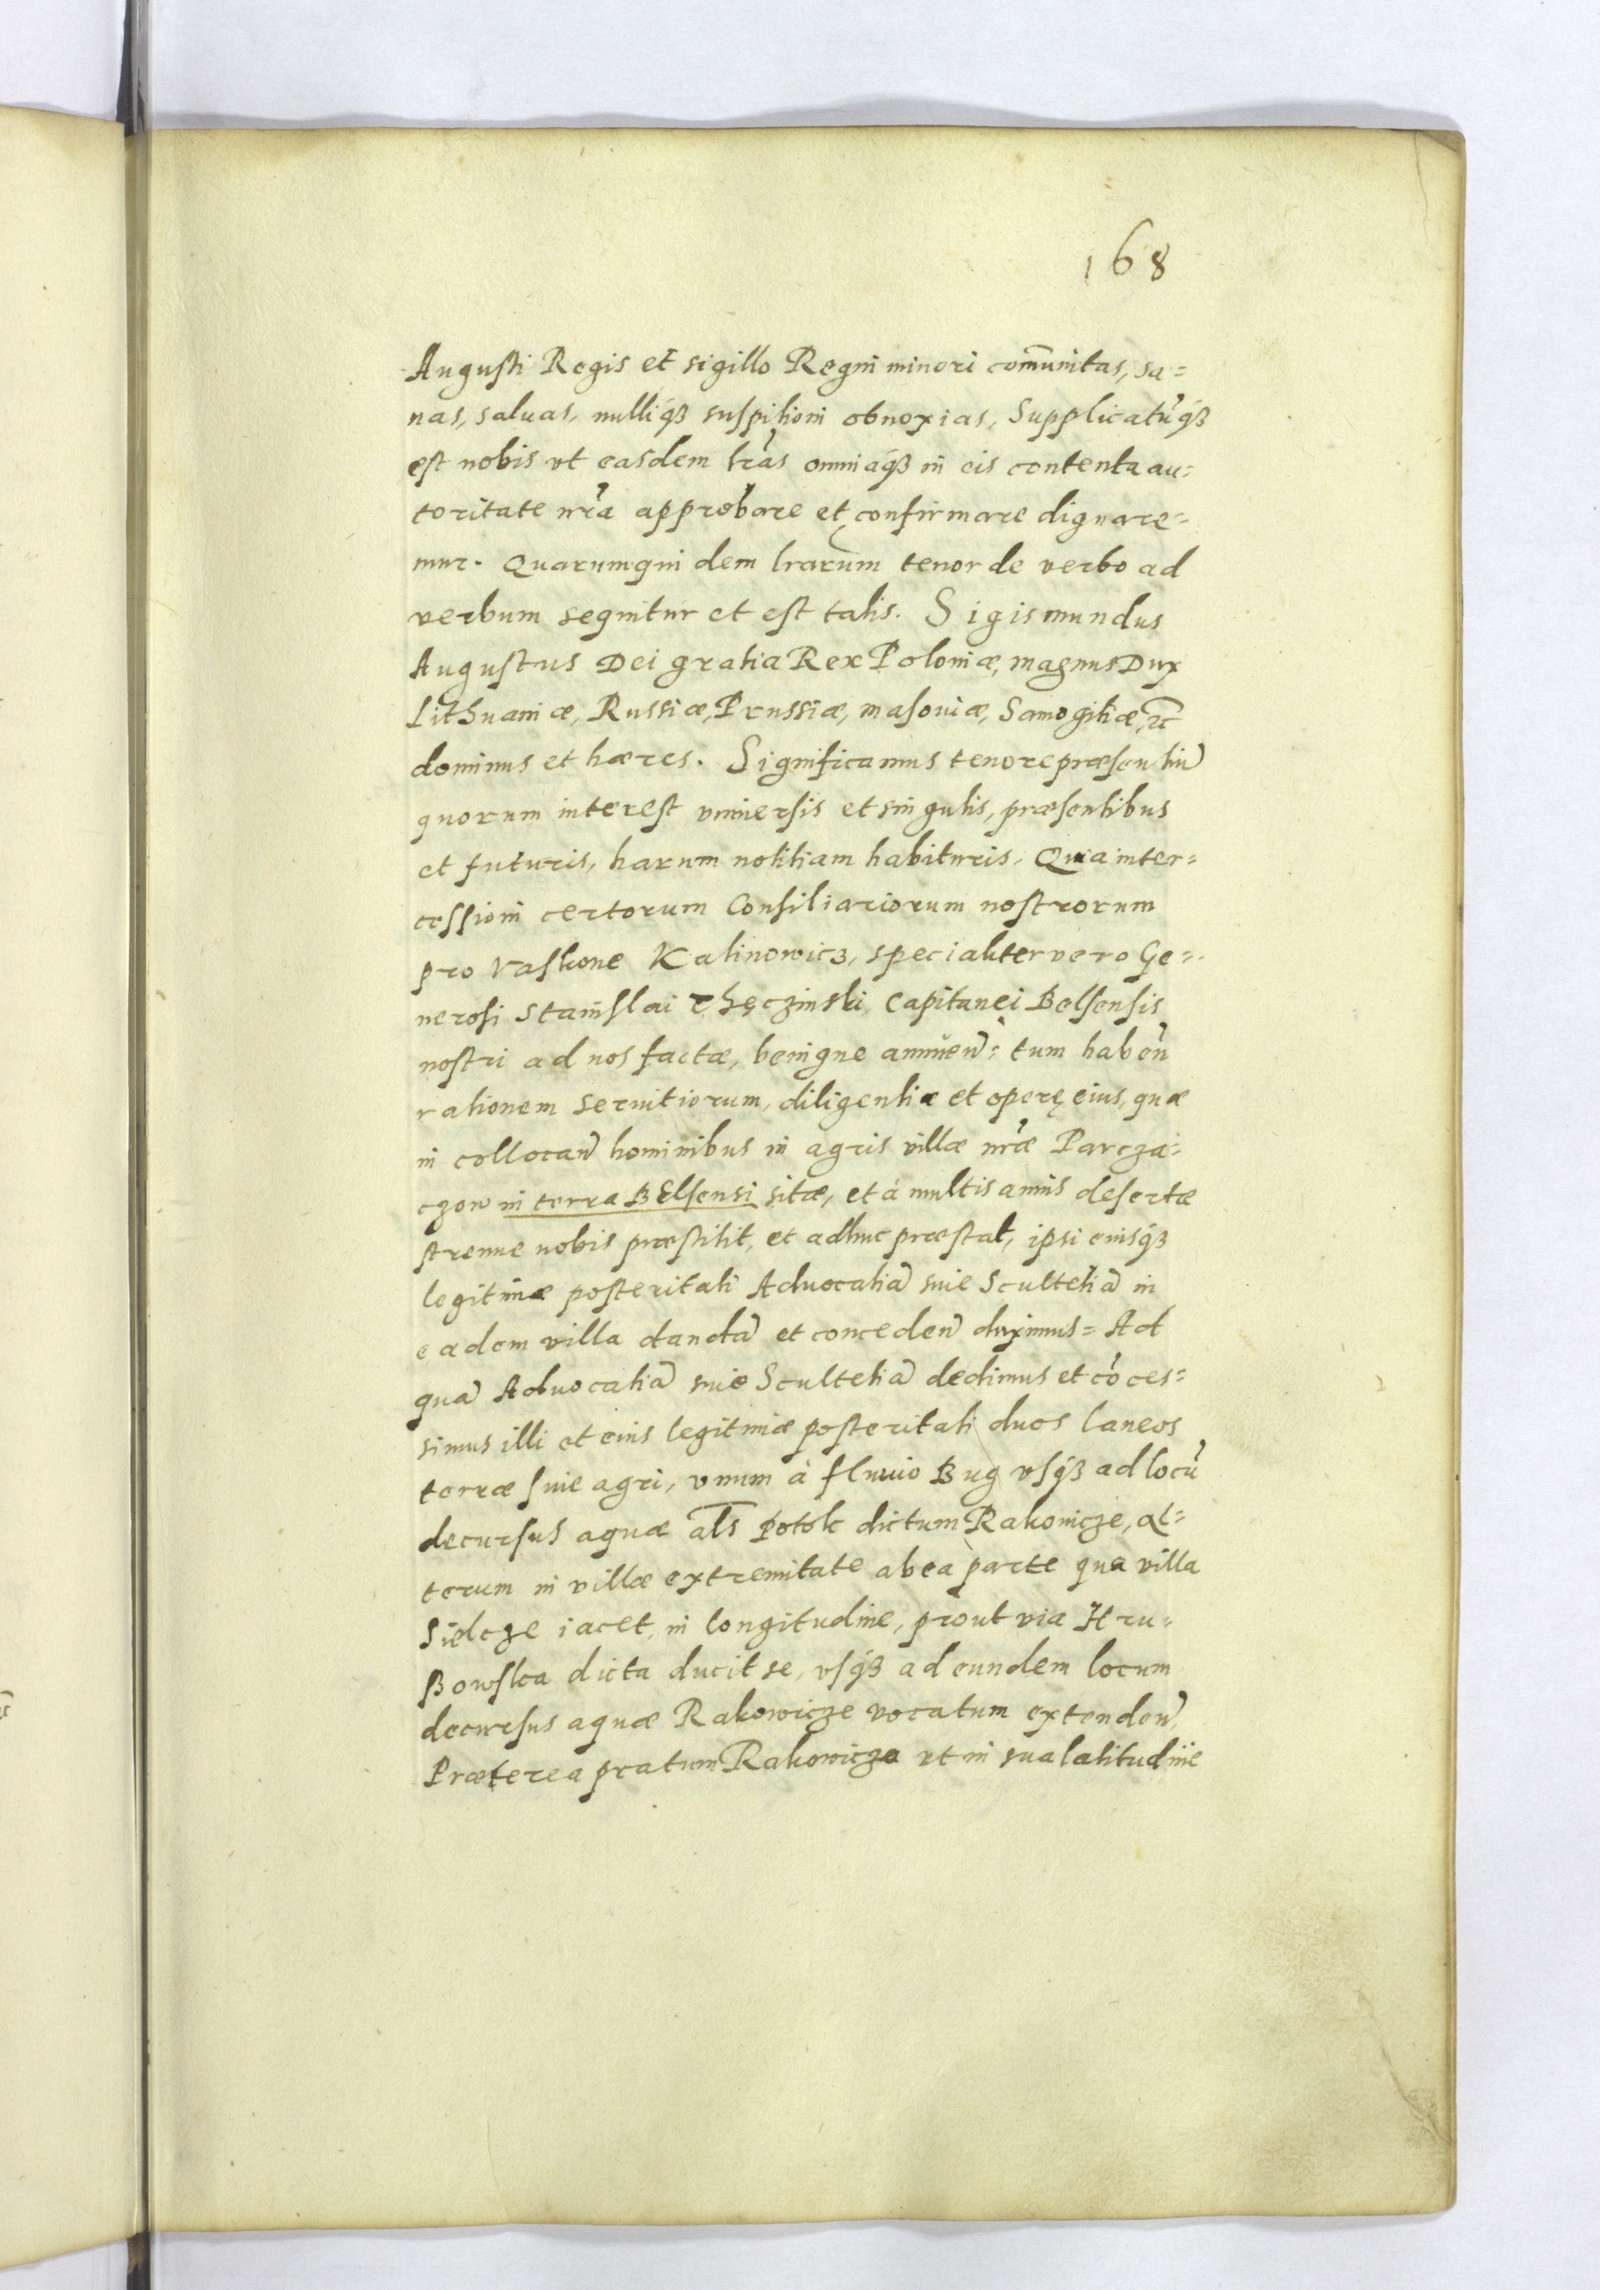 168
Augusti Regis et sigillo Regni minori com̃unitas, sa=
nas, saluas, nulliq́ʒ suspitioni obnoxias, Supplicatũq́ʒ
est nobis vt easdem lr̃as omniaq́ʒ in eis contenta au=
toritate nr̃a approbare et confirmare dignare=
mur. Quarumquidem lrarũm tenor de verbo ad
verbum sequitur et est talis. Sigismundus
Augustus Dei gratia Rex Poloniæ, magnus Dux
Lithuaniæ, Russiæ, Prussiæ, masouiæ, Samogitiæ, ꝛc̃
dominus et hæres. Significamus tenore præsentiũ
quorum interest vniuersis et singulis, præsentibus
et futuris, harum notitiam habituris, Quia inter=
cessioni certorum Consiliariorum nostrorum
pro Vaskone Kalinowicz, specialiter vero Ge=
nerosi Stanislai Thęczinski, Capitanei Belsensis
nostri ad nos factæ, benigne annuen̄: tum haben̄
rationem seruitiorum, diligentiæ et operę eius, quæ
in collocan̄ hominibus in agris villæ nr̃æ Parcza=
czow in terra BElsensi sitæ, et à multis annis desertæ
strenue nobis præstitit, et adhuc præstat, ipsi eiusq́ʒ
legitimæ posteritati Aduocatiã siue Scultetiã in
eadem villa dandã et conceden̄ duximus= Ad
quã Aduocatiã siue Scultetiã dedimus et cõces=
simus illi et eius legitimæ posteritati duos laneos
terræ siue agri, vnum à fluuio Bug vsq́ʒ ad locũ
decursus aquæ als̃ Potok dictum Rakouicze, al=
terum in villæ extremitate ab ea parte qua villa
Sielcze iacet, in longitudine, prout via Hru=
Bowska dicta ducit se, vsq́ʒ ad eundem locum
decursus aquæ Rakowicze vocatum extenden̄,
Præterea pratum Rakowicza vt in sua latitudine